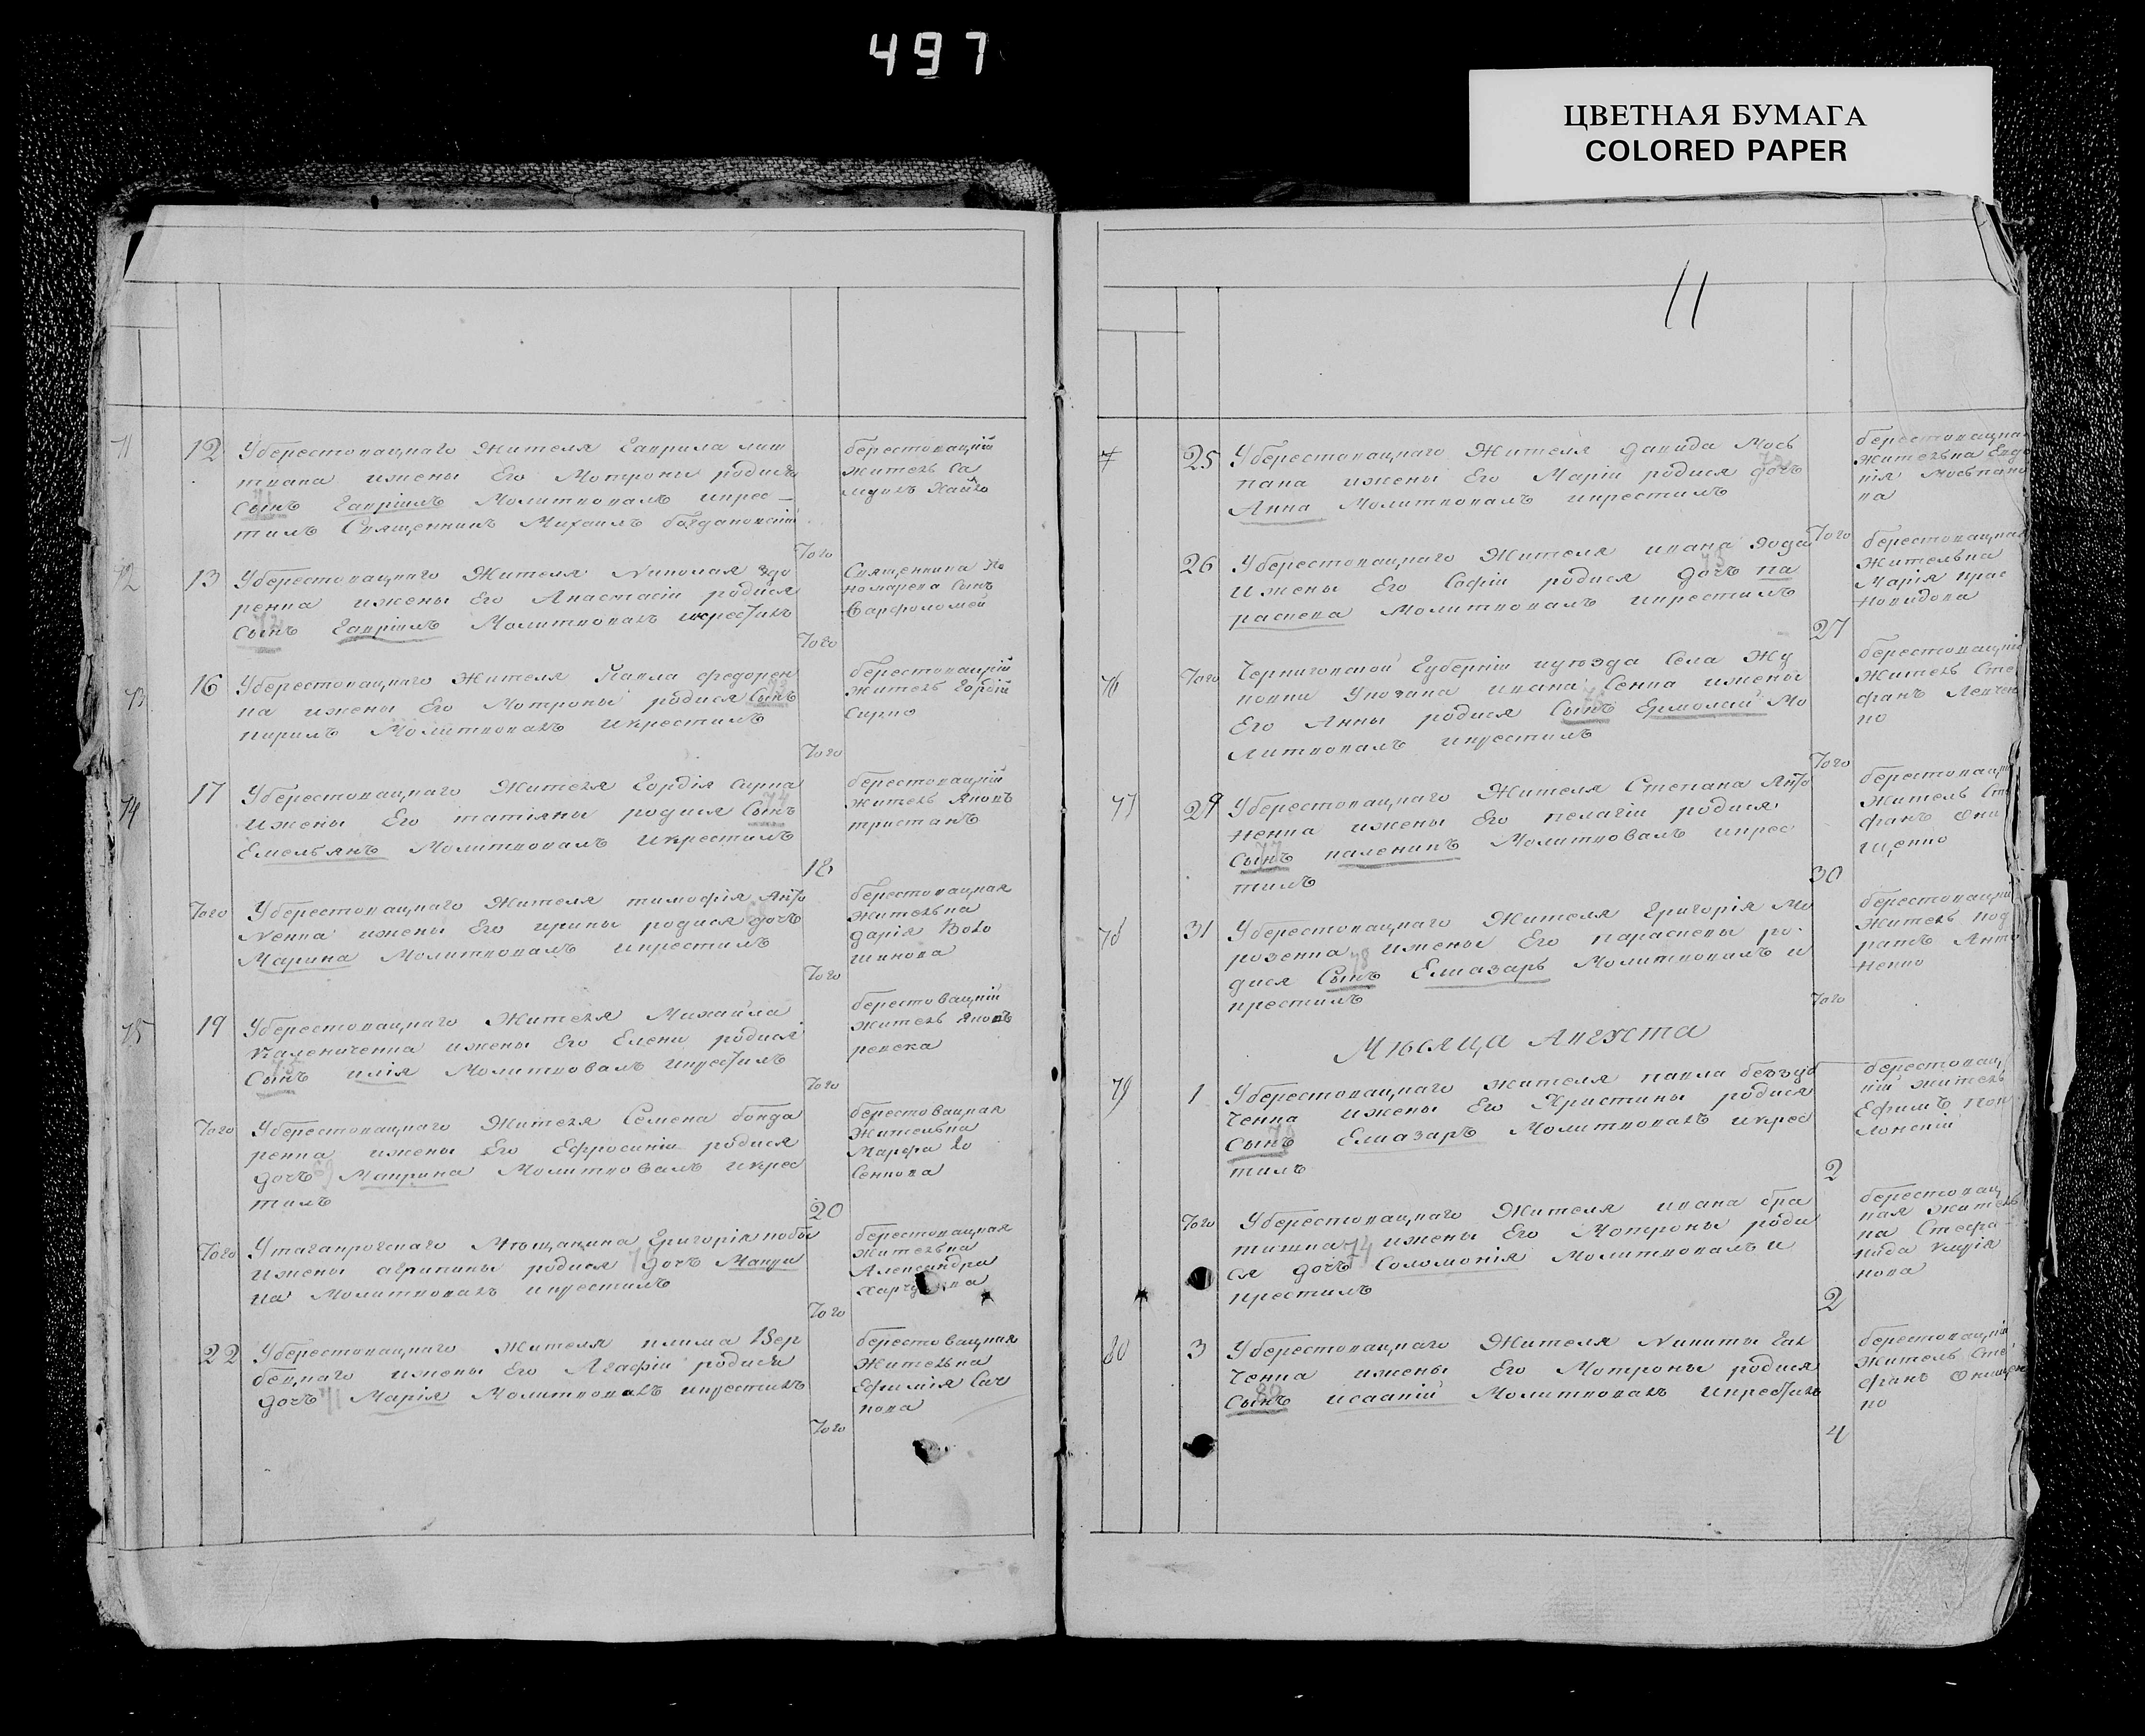 497
ЦВЕТНАЯ БУМАГА
COLORED PAPER
71
12
Уберестовацкаго Жителя Гаврила лит
вина ижены Его Мотроны родися
Сынъ Гавріилъ Молитвовалъ икрес–
тилъ Священникъ Михаилъ богдановскій
Того
берестовацкій
житель Са
72
13
Уберестовацкаго Жителя Николая
ренка ижены Его Анастасіи родися
Сынъ Гавріилъ Молитвовалъ икрестилъ
Того
Священника По
номарева Сынъ
Варфоломей
73
16
Уберестовацкаго Жителя Павла федорен
ка ижены Его Мотроны родися Сынъ
кирилъ Молитвовалъ икрестилъ
Того
берестовацкій
житель Гордій
Сирко
74
17
Уберестовацкаго Жителя Гордія сирка
ижены Его татіяны родися Сынъ
Емельянъ Молитвовалъ икрестилъ
18
берестовацкій
житель Яковъ
тристанъ
Того
Уберестовацкаго Жителя тимофія Анто
ненка ижены Его ирины родися дочь
Марина Молитвовалъ икрестилъ
Того
берестовацкая
жителька
дарія Воло
шинова
75
19
Уберестовацкаго Жителя Михайла
Калениченка ижены Его Елены родися
Сынъ илія Молитвовалъ икрестилъ
Того
берестовацкій
житель Яковъ
ревека
Того
Уберестовацкаго Жителя Семена бонда
ренка ижены Его Ефросиніи родися
дочь Маврина Молитвовалъ икрес
тилъ
20
берестовацкая
Жителька
Марфа
Того
Утаганрогскаго Мѣщанина Григорія
ижены агрипины родися дочь
на Молитвовалъ икрестилъ
Того
берестовацкая
жителька
Александра
22
Уберестовацкаго жителя клима Вер
бецкаго ижены Его Агафіи родися
дочь 71 Марія Молитвовалъ икрестилъ
Того
берестовацкая
жителька
Ефимія
11
25
Уберестовацкаго Жителя давида Мось
пана ижены Его Маріи родися дочь
Анна Молитвовалъ икрестилъ
Того
берестовацкая
жителька Евдо
кія Моськано
ва
26
Уберестовацкаго Жителя ивана
ижены Его Софіи родися дочь па
раскева Молитвовалъ икрестилъ
27
берестовацкая
жителька
Марія
76
Того
Черниговской Губерніи иуѣзда Села Жу
ковки Укозака ивана Сенка ижены
Его Анны родися Сынъ Ермолай Мо
литвовалъ икрестилъ
Того
берестовацкій
житель Сте
фанъ Левчен
ко
77
29
Уберестовацкаго Жителя Степана Анто
ненка ижены Его пелагіи родися
Сынъ каленикъ Молитвовалъ икрес
тилъ
30
берестовацкій
житель Сте
фанъ Они
щенко
78
31
Уберестовацкаго Жителя Григорія Мо
розенка ижены Его параскевы ро
дися Сынъ Елиазаръ Молитвовалъ и
крестилъ
Того
берестовацкій
житель Код
ратъ Анто
ненко
Мѣсяца Августа
79
1
Уберестовацкаго жителя павла беззуб
ченка ижены Его Христины родися
Сынъ Елиазаръ Молитвовалъ икрес
тилъ
2
берестовац
кій житель
Ефимъ
Того
Уберестовацкаго Жителя ивана бра
тишка 74 ижены Его Мотроны роди
ся дочь Соломонія Молитвовалъ и
крестилъ
2
берестовац
кая жутель
ка Стефа
нида
80
3
Уберестовацкаго Жителя Никиты
ченка ижены Его Мотроны родися
Сынъ исаакій Молитвовалъ икрестилъ
4
берестовацкій
житель Сте
фанъ Онищен
ко